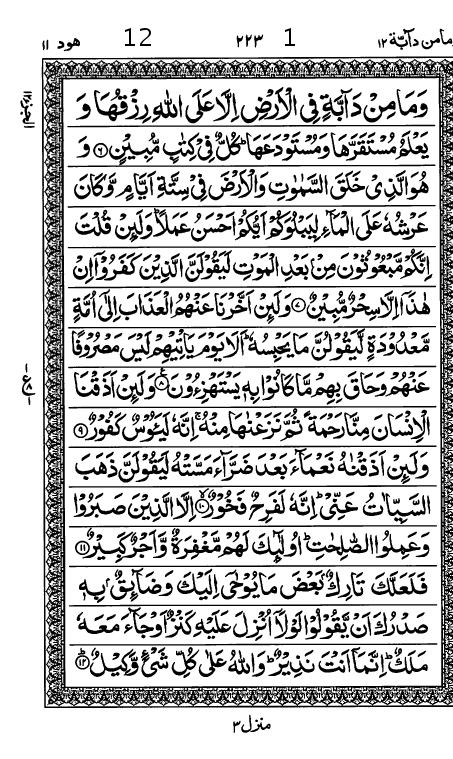 ومامن دآبّة ١٢ 1 ٢٢٣ 12 هود ١١
وَمَا مِنْ دَآبَّةٍ فِي الْاَرْضِ اِلَّا عَلَى اللّٰهِ رِزْقُهَا وَ
يَعْلَمُ مُسْتَقَرَّهَا وَمُسْتَوْدَعَهَا ؕ كُلٌّ فِيْ كِتٰبٍ مُّبِيْنٍ ﴿۶﴾ وَ
هُوَ الَّذِيْ خَلَقَ السَّمٰوٰتِ وَالْاَرْضَ فِيْ سِتَّةِ اَيَّامٍ وَّكَانَ
عَرْشُهٗ عَلَى الْمَآءِ لِيَبْلُوَكُمْ اَيُّكُمْ اَحْسَنُ عَمَلًا ؕ وَلَئِنْ قُلْتَ
اِنَّكُمْ مَّبْعُوْثُوْنَ مِنْۢ بَعْدِ الْمَوْتِ لَيَقُوْلَنَّ الَّذِيْنَ كَفَرُوْٓا اِنْ
هٰذَآ اِلَّا سِحْرٌ مُّبِيْنٌ ﴿۷﴾ وَلَئِنْ اَخَّرْنَا عَنْهُمُ الْعَذَابَ اِلٰٓى اُمَّةٍ
مَّعْدُوْدَةٍ لَّيَقُوْلُنَّ مَا يَحْبِسُهٗ ؕ اَلَا يَوْمَ يَاْتِيْهِمْ لَيْسَ مَصْرُوْفًا
عَنْهُمْ وَحَاقَ بِهِمْ مَّا كَانُوْا بِهٖ يَسْتَهْزِءُوْنَ ﴿۸﴾ وَلَئِنْ اَذَقْنَا
الْاِنْسَانَ مِنَّا رَحْمَةً ثُمَّ نَزَعْنٰهَا مِنْهُ ۚ اِنَّهٗ لَيَـُٔوْسٌ كَفُوْرٌ ﴿۹﴾
وَلَئِنْ اَذَقْنٰهُ نَعْمَآءَ بَعْدَ ضَرَّآءَ مَسَّتْهُ لَيَقُوْلَنَّ ذَهَبَ
السَّيِّاٰتُ عَنِّيْ ؕ اِنَّهٗ لَفَرِحٌ فَخُوْرٌ ﴿۱۰﴾ اِلَّا الَّذِيْنَ صَبَرُوْا
وَعَمِلُوا الصّٰلِحٰتِ ؕ اُولٰٓئِكَ لَهُمْ مَّغْفِرَةٌ وَّاَجْرٌ كَبِيْرٌ ﴿۱۱﴾
فَلَعَلَّكَ تَارِكٌۢ بَعْضَ مَا يُوْحٰٓى اِلَيْكَ وَضَآئِقٌۢ بِهٖ
صَدْرُكَ اَنْ يَّقُوْلُوْا لَوْلَآ اُنْزِلَ عَلَيْهِ كَنْزٌ اَوْ جَآءَ مَعَهٗ
مَلَكٌ ؕ اِنَّمَآ اَنْتَ نَذِيْرٌ ؕ وَاللّٰهُ عَلٰى كُلِّ شَيْءٍ وَّكِيْلٌ ﴿۱۲﴾
منزل ٣